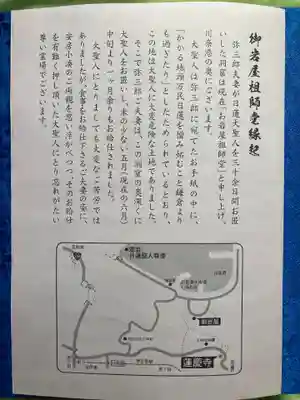 御岩屋祖師堂縁起
弥三郎夫妻が日蓮大聖人を三十余日間お匿
いした洞窟は現在「お岩屋祖師堂」と申し上げ、
川奈港の奥にございます。
大聖人は弥三郎に宛てたお手紙の中に、
「かかる地頭万民日蓮を憎み妬むこと鎌倉より
も過ぎたり」としたためられているとおり、
この地は大聖人に大変危険な土地でありました。
そこで弥三郎ご夫妻は、この洞窟の奥深くに
大聖人をお匿いし、米の少ない五月(現在の六月)
中旬より一ヶ月余りもお給仕されました。
大聖人にとりましても大変なご苦労では
ありましたが食事をお給仕下さるご夫妻の姿に、
安房小湊のご両親を思い浮かべつつ、そのお給仕
を有難く押し頂いた大聖人にとり忘れがたい
尊い霊場でございます。
御岩屋
蓮慶寺